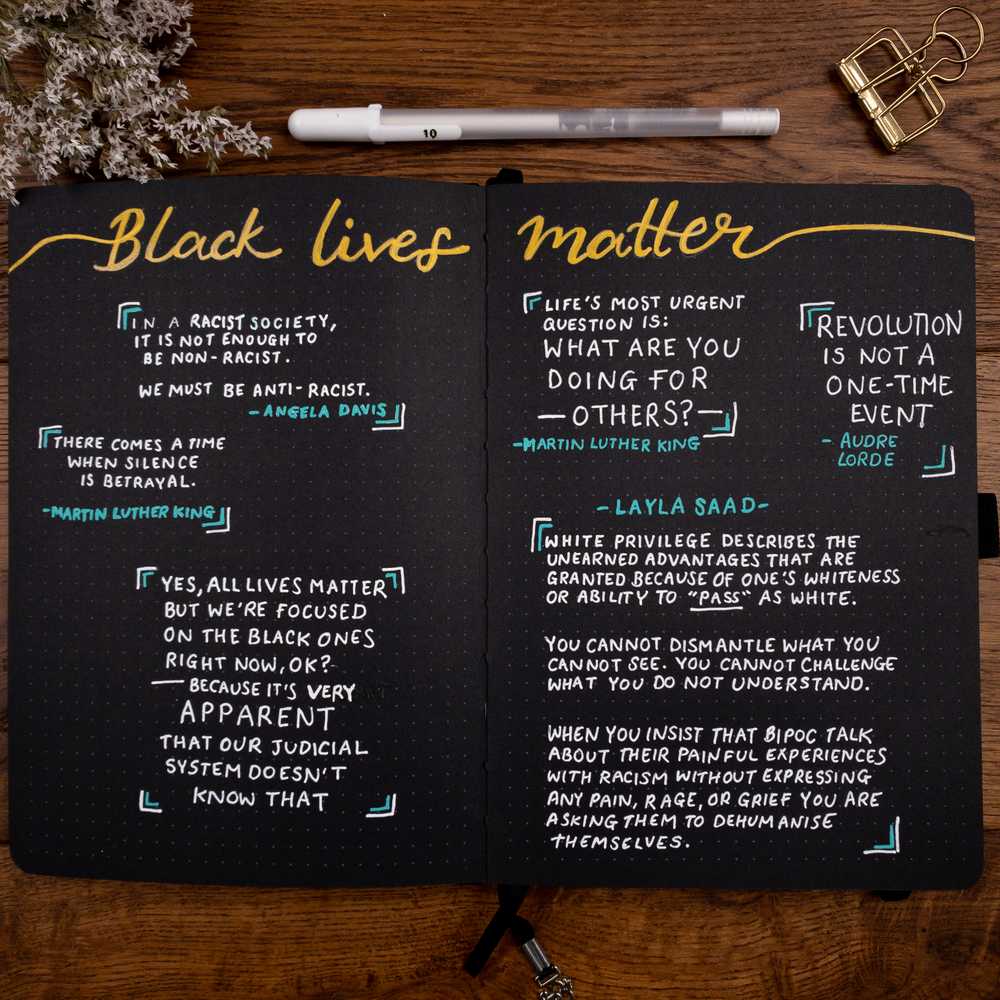 10
Black lives matter
IN A RACIST SOCIETY,
IT IS NOT ENOUGH TO
BE NON-RACIST.
WE MUST BE ANTI-RACIST.
-ANGELA DAVIS
THERE COMES A TIME
WHEN SILENCE
IS BETRAYAL.
-MARTIN LUTHER KING
YES, ALL LIVES MATTER
BUT WE'RE FOCUSED
ON THE BLACK ONES
RIGHT NOW, OK?
— BECAUSE IT'S VERY
APPARENT
THAT OUR JUDICIAL
SYSTEM DOESN'T
KNOW THAT
LIFE'S MOST URGENT
QUESTION IS:
WHAT ARE YOU
DOING FOR
—OTHERS?—
-MARTIN LUTHER KING
REVOLUTION
IS NOT A
ONE-TIME
EVENT
- AUDRE
LORDE
-LAYLA SAAD-
WHITE PRIVILEGE DESCRIBES THE
UNEARNED ADVANTAGES THAT ARE
GRANTED BECAUSE OF ONE'S WHITENESS
OR ABILITY TO "PASS" AS WHITE.
YOU CANNOT DISMANTLE WHAT YOU
CANNOT SEE. YOU CANNOT CHALLENGE
WHAT YOU DO NOT UNDERSTAND.
WHEN YOU INSIST THAT BIPOC TALK
ABOUT THEIR PAINFUL EXPERIENCES
WITH RACISM WITHOUT EXPRESSING
ANY PAIN, RAGE, OR GRIEF YOU ARE
ASKING THEM TO DEHUMANISE
THEMSELVES.